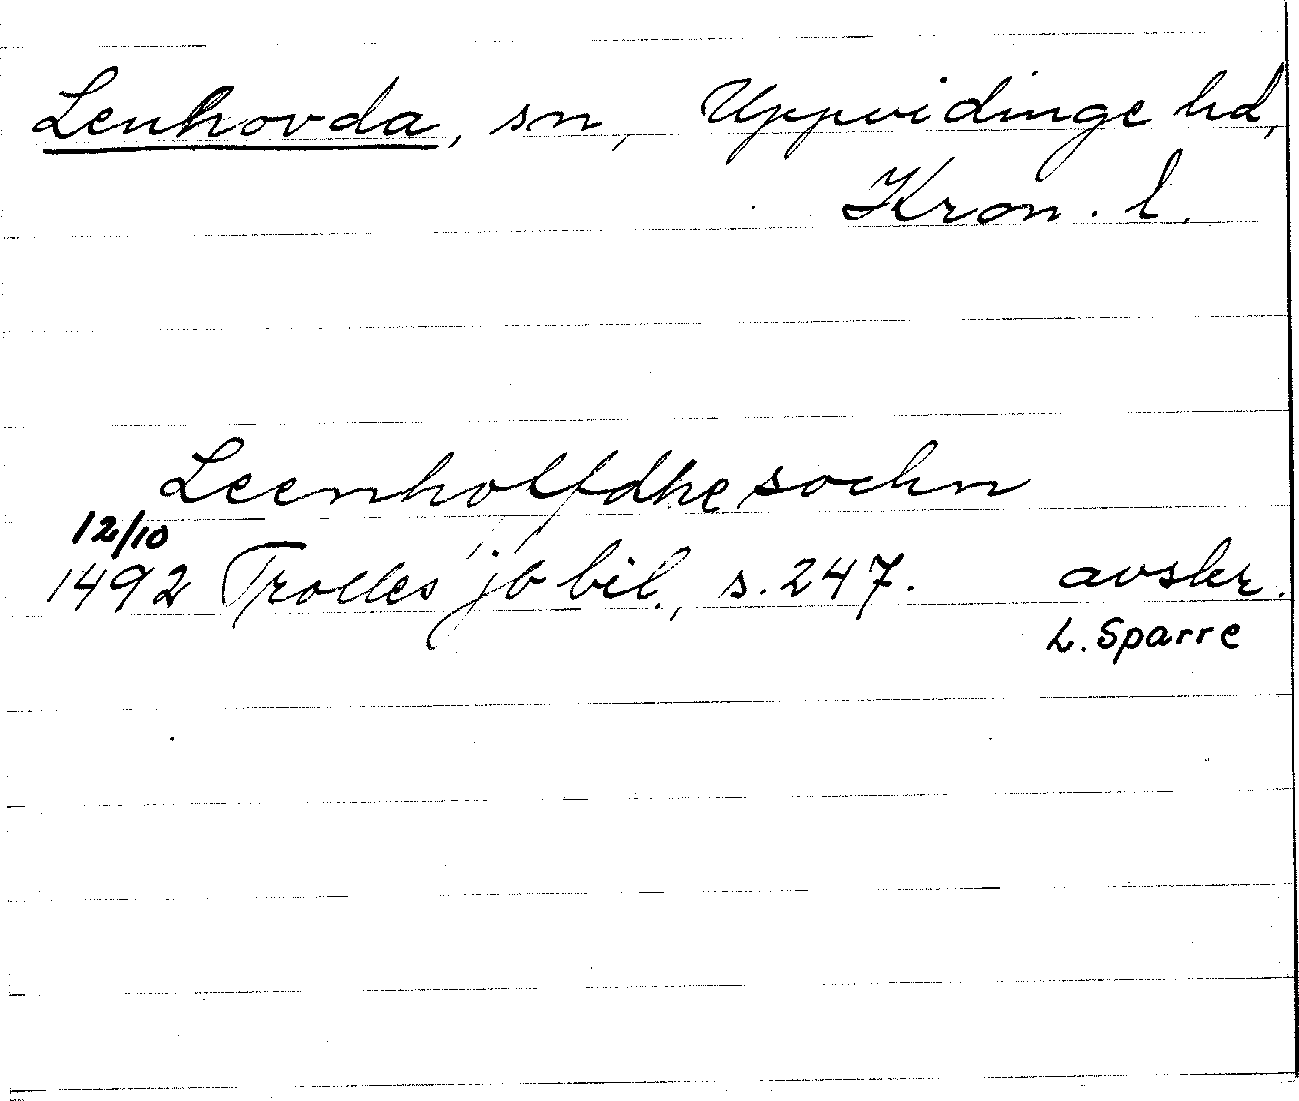 Lenhovda, sn, Uppvidinge hd,
Kron. l.
Leenholfdhe sochn
12/10
1492 Trolles jb bil., s. 247. avskr.
L. Sparre